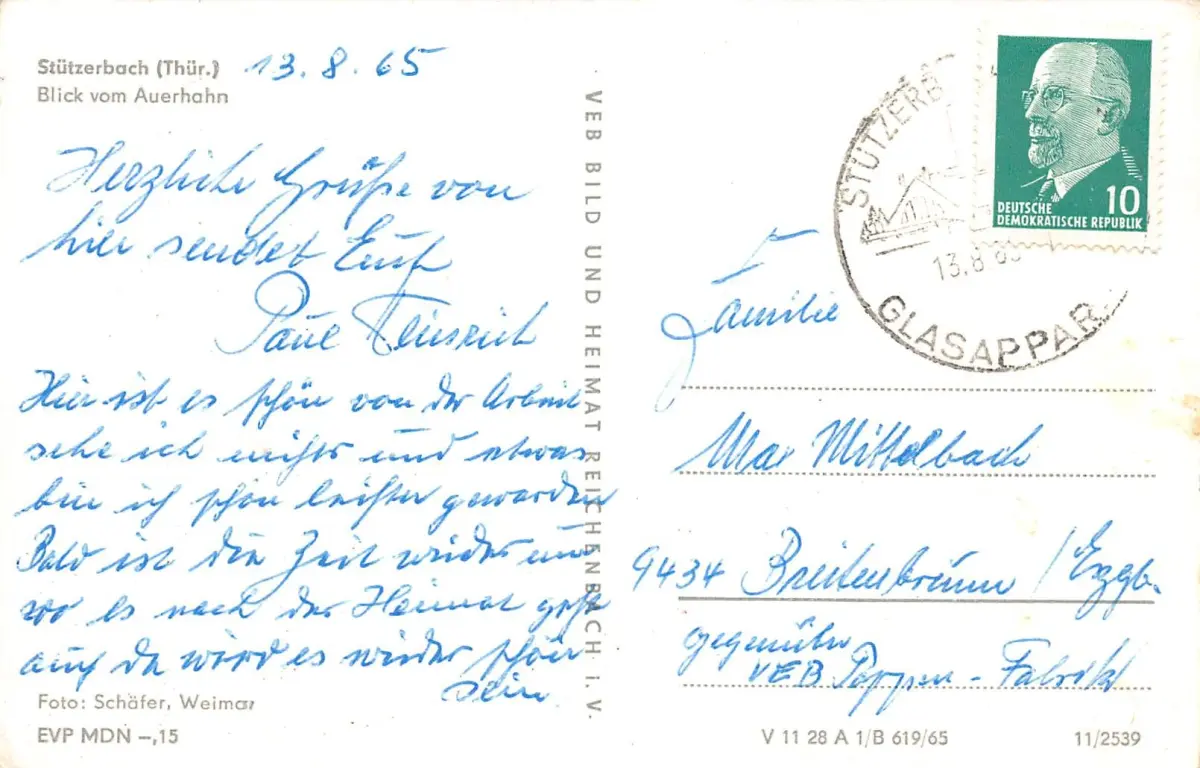 Stützerbach (Thür.) 13.8.65
Blick vom Auerhahn
Herzliche Grüße von
hier sendet Euch
Paul Heinrich
Hier ist es schön von der Arbeit
sehe ich nichts und etwas
bin ich schon leichter geworden
Bald ist die Zeit wieder um
wo es nach der Heimat geht
auch da wird es wieder schön
sein
Foto: Schäfer, Weimar
EVP MDN –,15
VEB BILD UND HEIMAT REICHENBACH I. V.
STÜTZERB
13.8.65
GLASAPPAR
10
DEUTSCHE
DEMOKRATISCHE REPUBLIK
Familie
Max Mittelbach
9434 Breitenbrunn / Erzgb.
gegenüber
VEB Pappen-Fabrik
V 11 28 A 1/B 619/65
11/2539